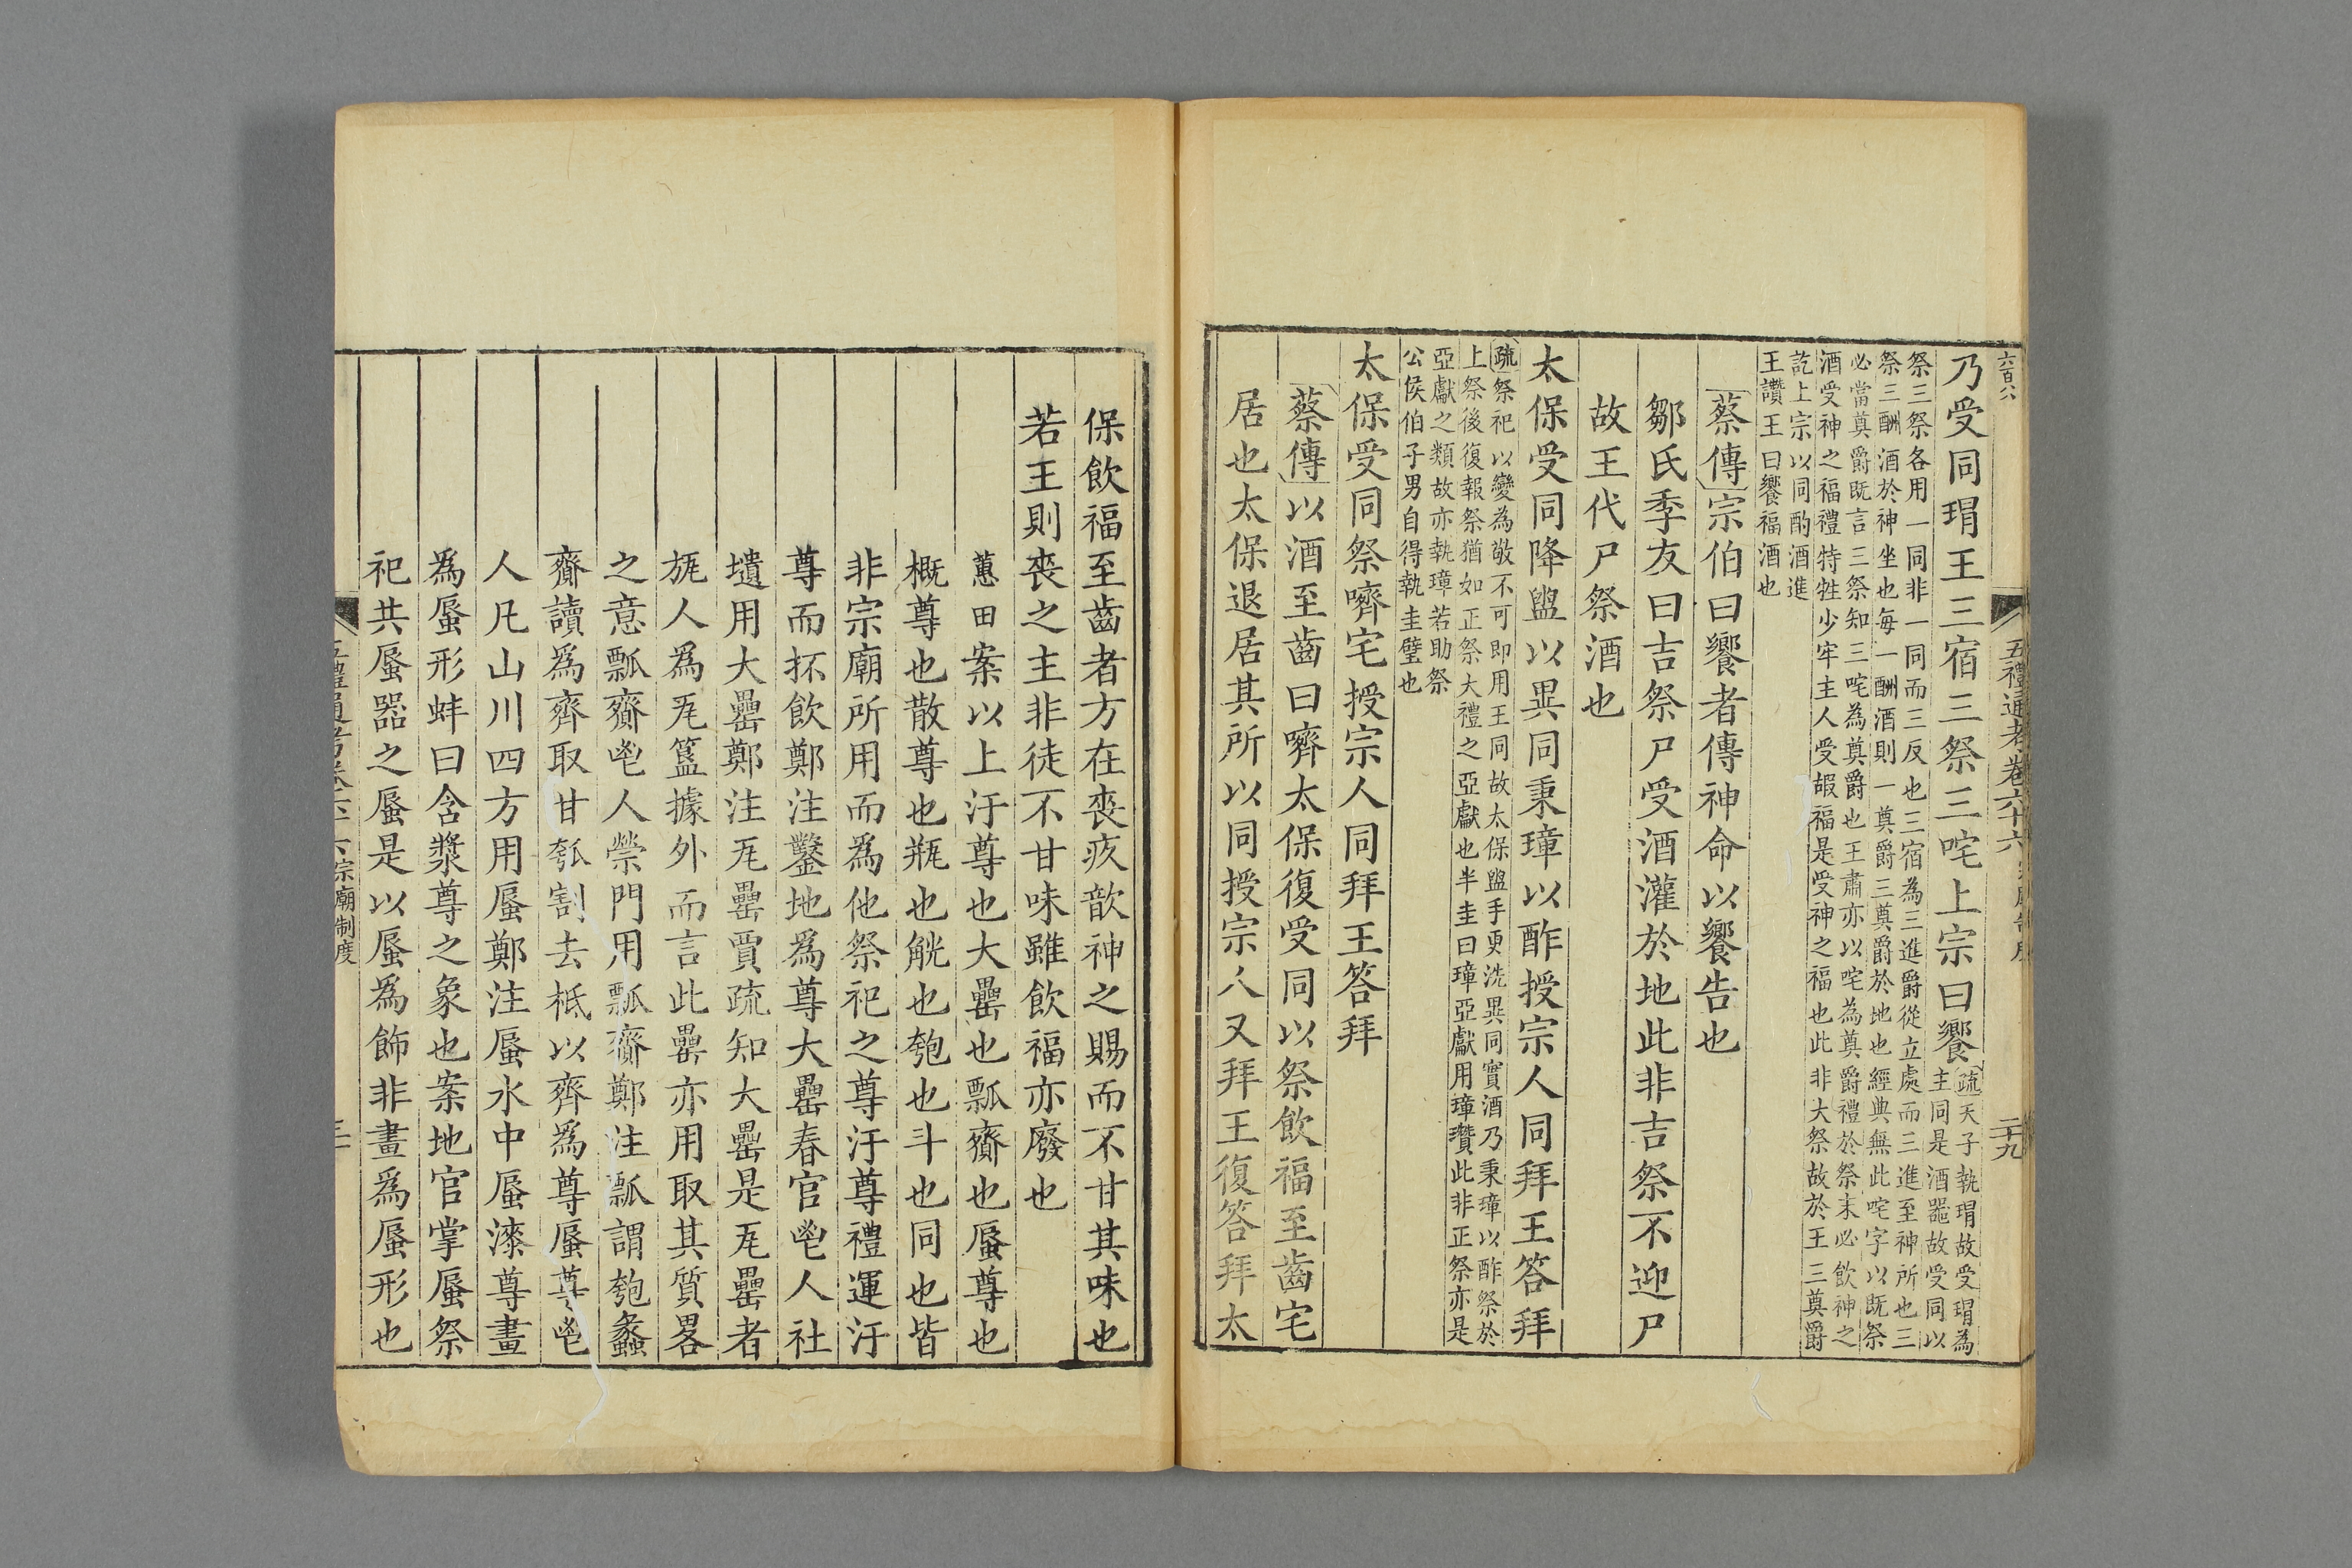 六百八
五禮通考卷六十六
二十九
乃受同瑁王三宿三祭三咤上宗曰饗疏天子執瑁故受瑁為
主同是酒器故受同以
祭三祭各用一同非一同而三反也三宿為三進爵從立處而三進至神所也三
祭三酬酒於神坐也每一酬酒則一奠爵三奠爵於地也經典無此咤字以既祭
必當奠爵既言三祭知三咤為奠爵也王肅亦以咤為奠爵禮於祭末必飲神之
酒受神之福禮特牲少牢主人受嘏福是受神之福也此非大祭故於王三奠爵
訖上宗以同酌酒進
王讚王曰饗福酒也
蔡傳宗伯曰饗者傳神命以饗告也
鄒氏季友曰吉祭尸受酒灌於地此非吉祭不迎尸
故王代尸祭酒也
太保受同降盥以異同秉璋以酢授宗人同拜王答拜
疏祭祀以變為敬不可即用王同故太保盥手更洗異同實酒乃秉璋以酢祭於
上祭後復報祭猶如正祭大禮之亞獻也半圭曰璋亞獻用璋瓚此非正祭亦是
亞獻之類故亦執璋若助祭
公侯伯子男自得執圭璧也
太保受同祭嚌宅授宗人同拜王答拜
蔡傳以酒至齒曰嚌太保復受同以祭飲福至齒宅
居也太保退居其所以同授宗人又拜王復答拜太
保飲福至齒者方在喪疚歆神之賜而不甘其味也
若王則喪之主非徒不甘味雖飲福亦廢也
蕙田案以上汙尊也大罍也瓢齎也蜃尊也
概尊也散尊也瓶也觥也匏也斗也同也皆
非宗廟所用而為他祭祀之尊汙尊禮運汙
尊而抔飲鄭注鑿地為尊大罍春官鬯人社
壝用大罍鄭注瓦罍賈疏知大罍是瓦罍者
旊人為瓦簋據外而言此罍亦用取其質畧
之意瓢齎鬯人禜門用瓢齎鄭注瓢謂匏蠡
齎讀為齊取甘瓠割去柢以齊為尊蜃尊鬯
人凡山川四方用蜃鄭注蜃水中蜃漆尊畫
為蜃形蚌曰含漿尊之象也案地官掌蜃祭
祀共蜃器之蜃是以蜃為飾非畫為蜃形也
宗廟制度